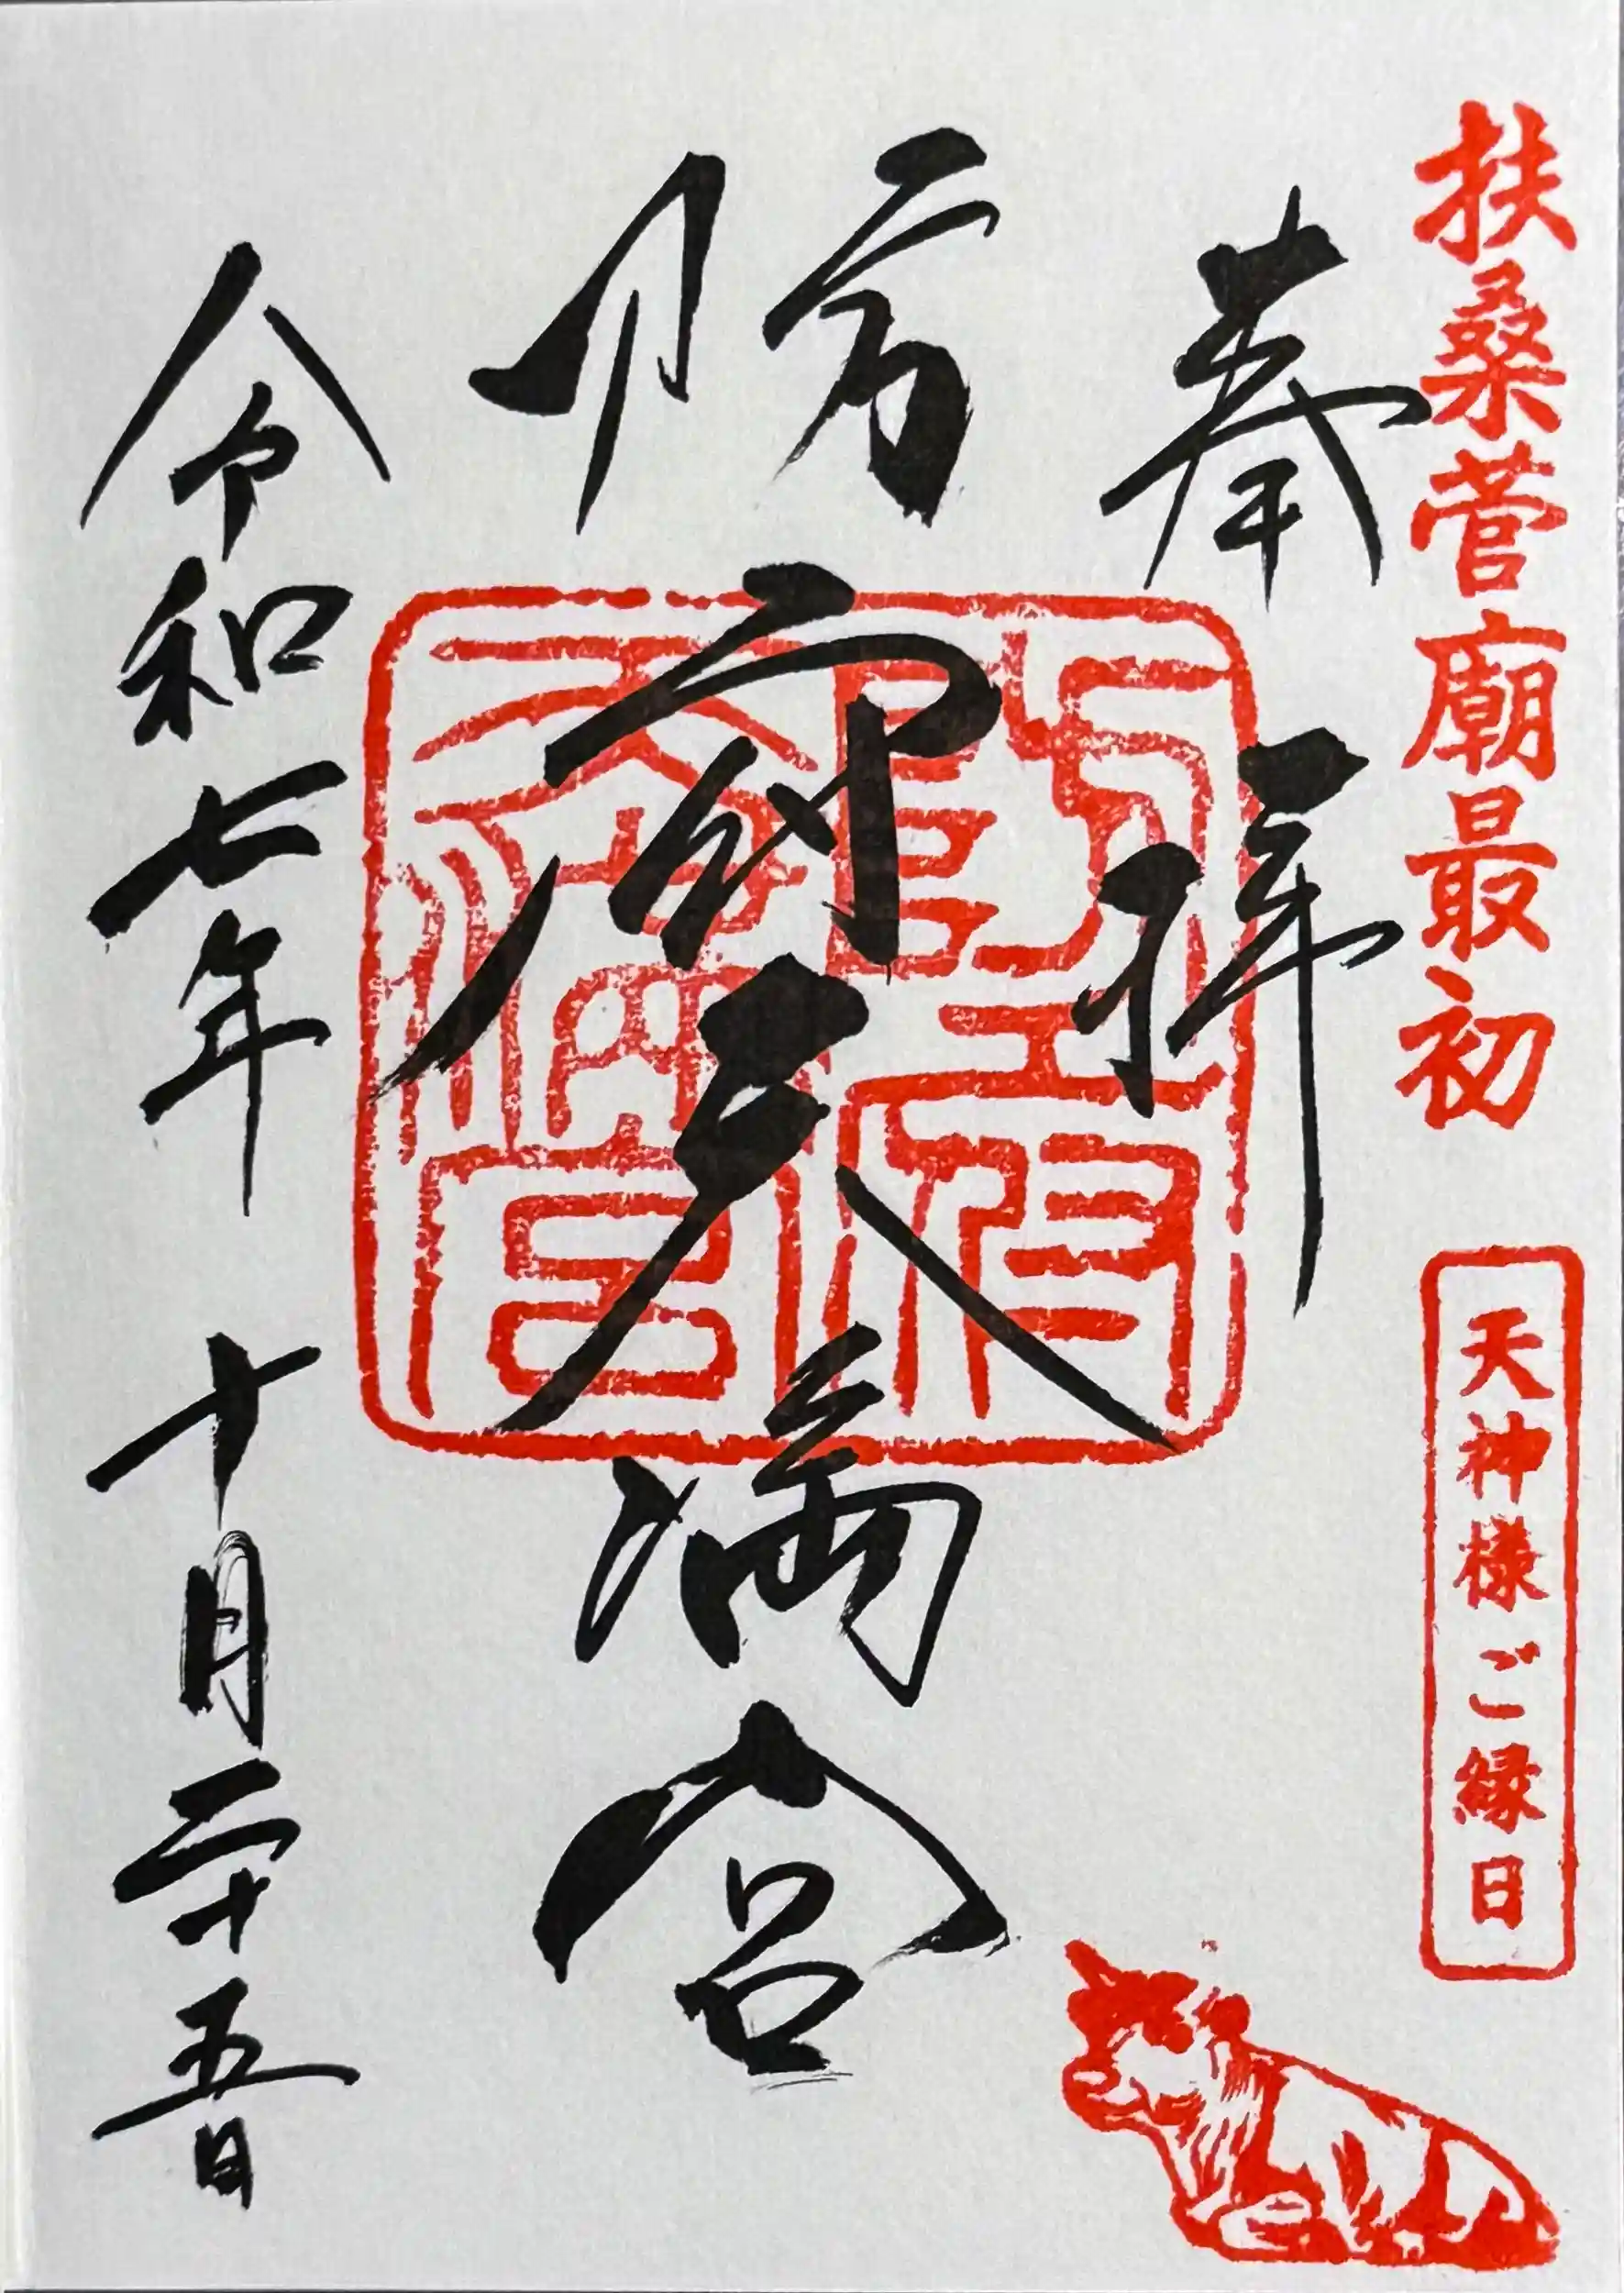 扶桑菅廟最初
天神様ご縁日
奉拝
防府天満宮
令和七年 十月二十五日